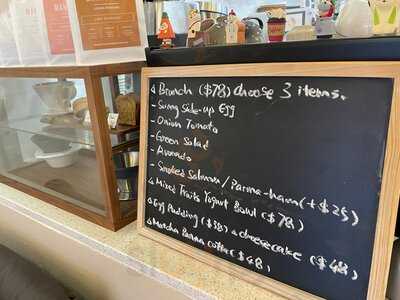 Brunch ($78) choose 3 items.
- Sunny Side-up Egg
- Onion Tomato
- Green Salad
- Avocado
- Smoked Salmon / Parma-ham (+$25)
Mixed Fruits Yogurt Bowl ($78)
Egg Pudding ($38) & cheesecake ($48)
Matcha Panna cotta ($48)